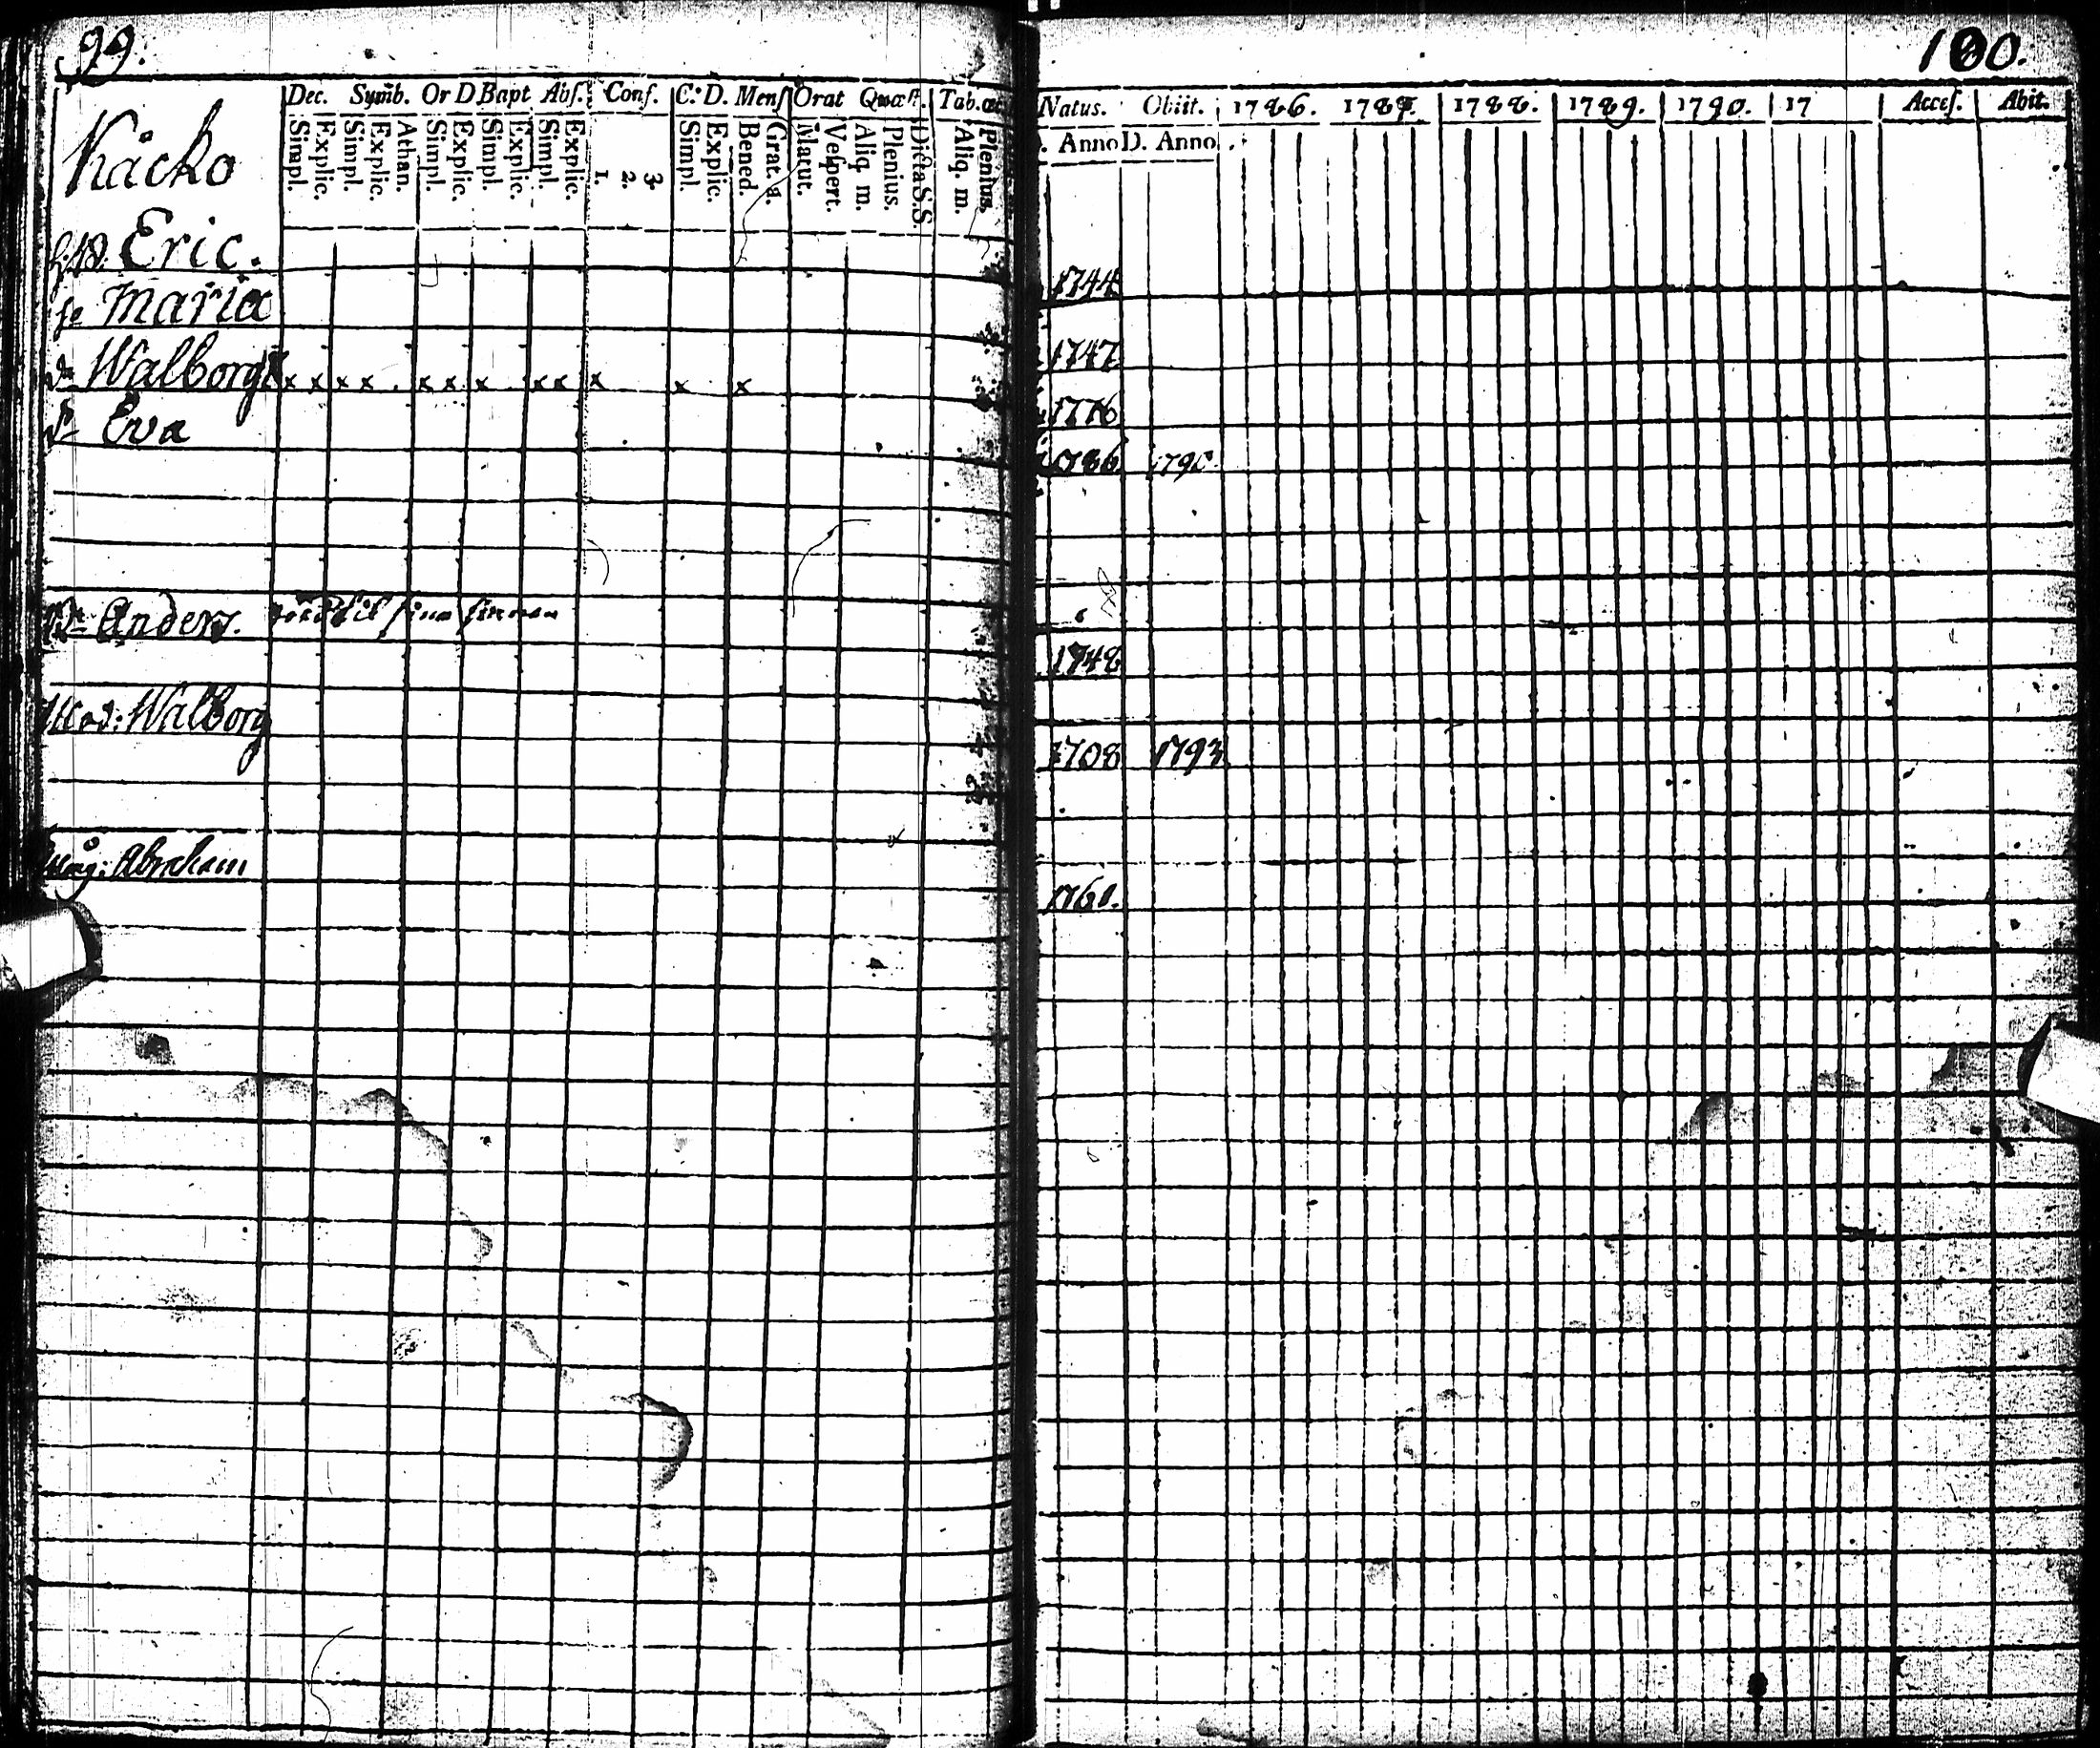 99.
Dec. Symb. Or D Bapt Abſ. Conf. C. D. Menſ Orat Quæſt. Tab. œc
Simpl. Explic. Simpl. Explic. Athan. Simpl. Explic. Simpl. Explic. Simpl. Explic. 1. 2. 3. Simpl. Explic. Bened. Grat. a. Matut. Veſpert. Aliq. m. Plenius. Dicta S.S. Aliq. m. Plenius.
Käcko
Eric.
Maria
Walborg x x x x . x x x x x x x x
Eva
Anders.
Walborg
Abraham
100.
Natus. Obiit. 1786. 1787. 1788. 1789. 1790. 17 Acceſ. Abit.
. Anno D. Anno
1744
1747
1776
1786 1790
1748
1708 1793
1760.